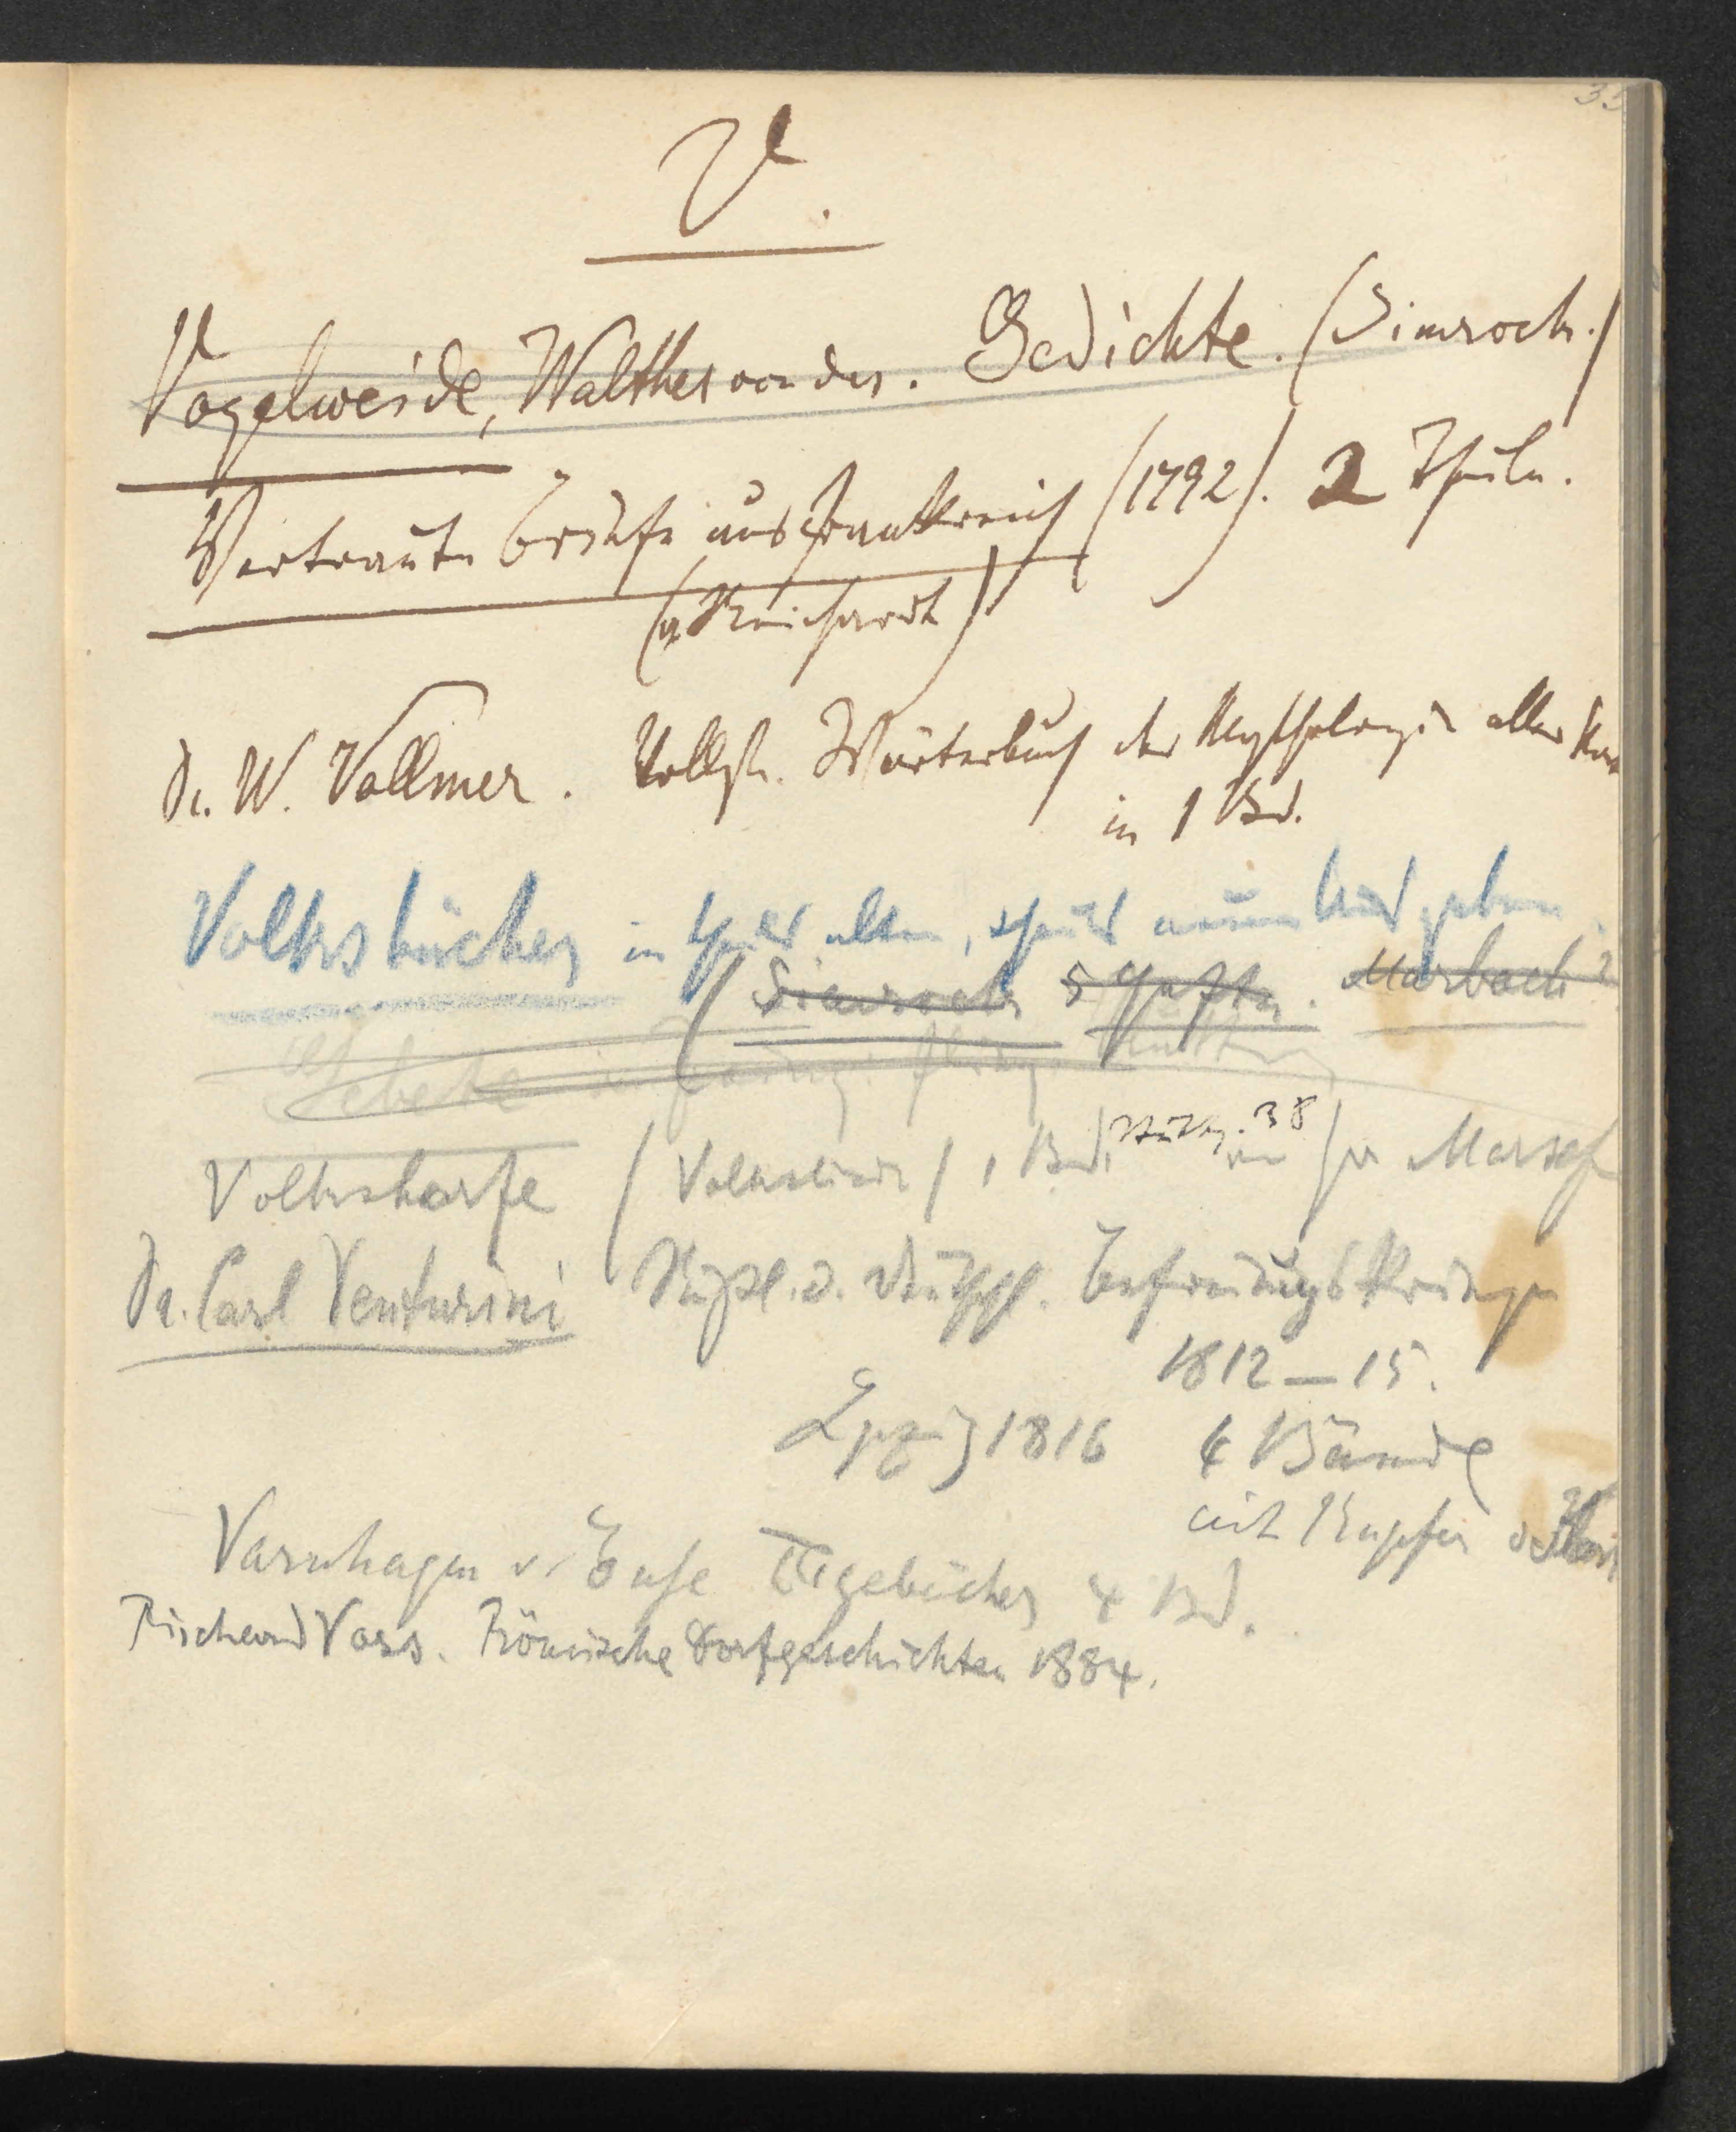 35
V.
Vogelweide, Walther von der. Gedichte. (Simrock.)
Vertraute Briefe aus Frankreich (1792). 2 Theile.
(v. Reichardt)
Dr. W. Vollmer. Vollst. Wörterbuch der Mythologie aller
in 1 Bd.
Volksbücher in theils alten, theils neuen
(Simrock 5 Hefte. Marbach?
Gebete
Volksharfe (Volkslieder) 1 Bd. Stuttg. 38
Dr. Carl Venturini Rußl. u. Deutschl. Befreiungskriege
1812–15.
Lpzig 1816 4 Bände
mit Kupfer
Varnhagen v. Ense Tagebücher 4 Bd.
Richard Voss. Römische Dorfgeschichten 1884.